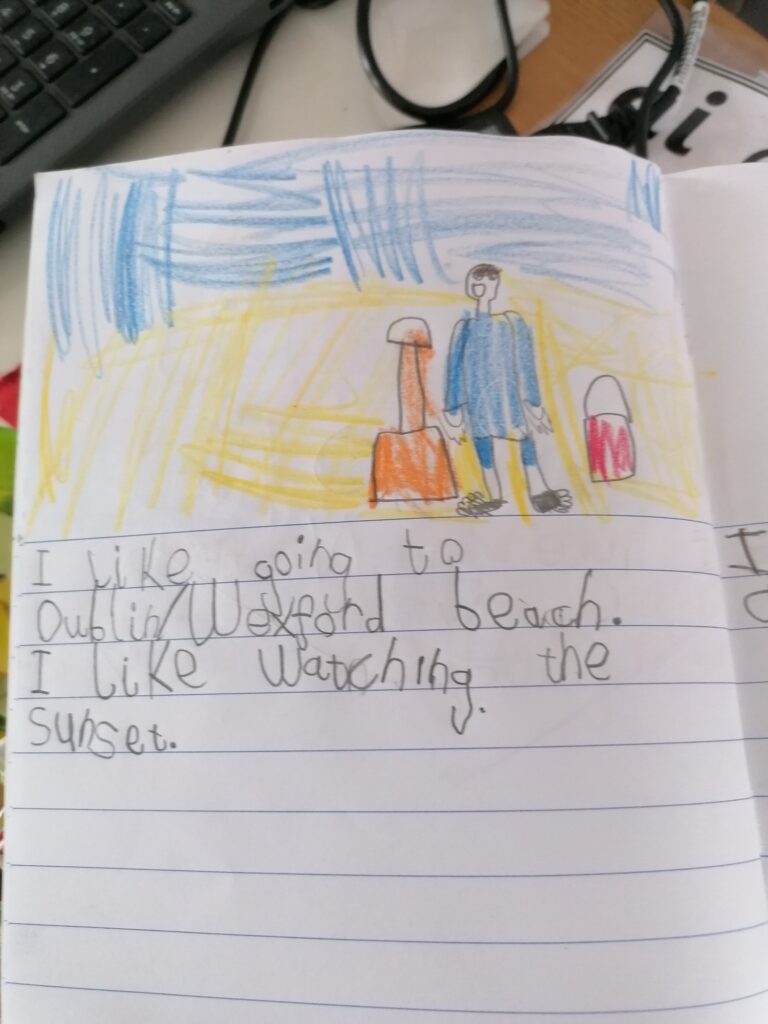 I like going to
Dublin/Wexford beach.
I like watching the
sunset.
I
ai